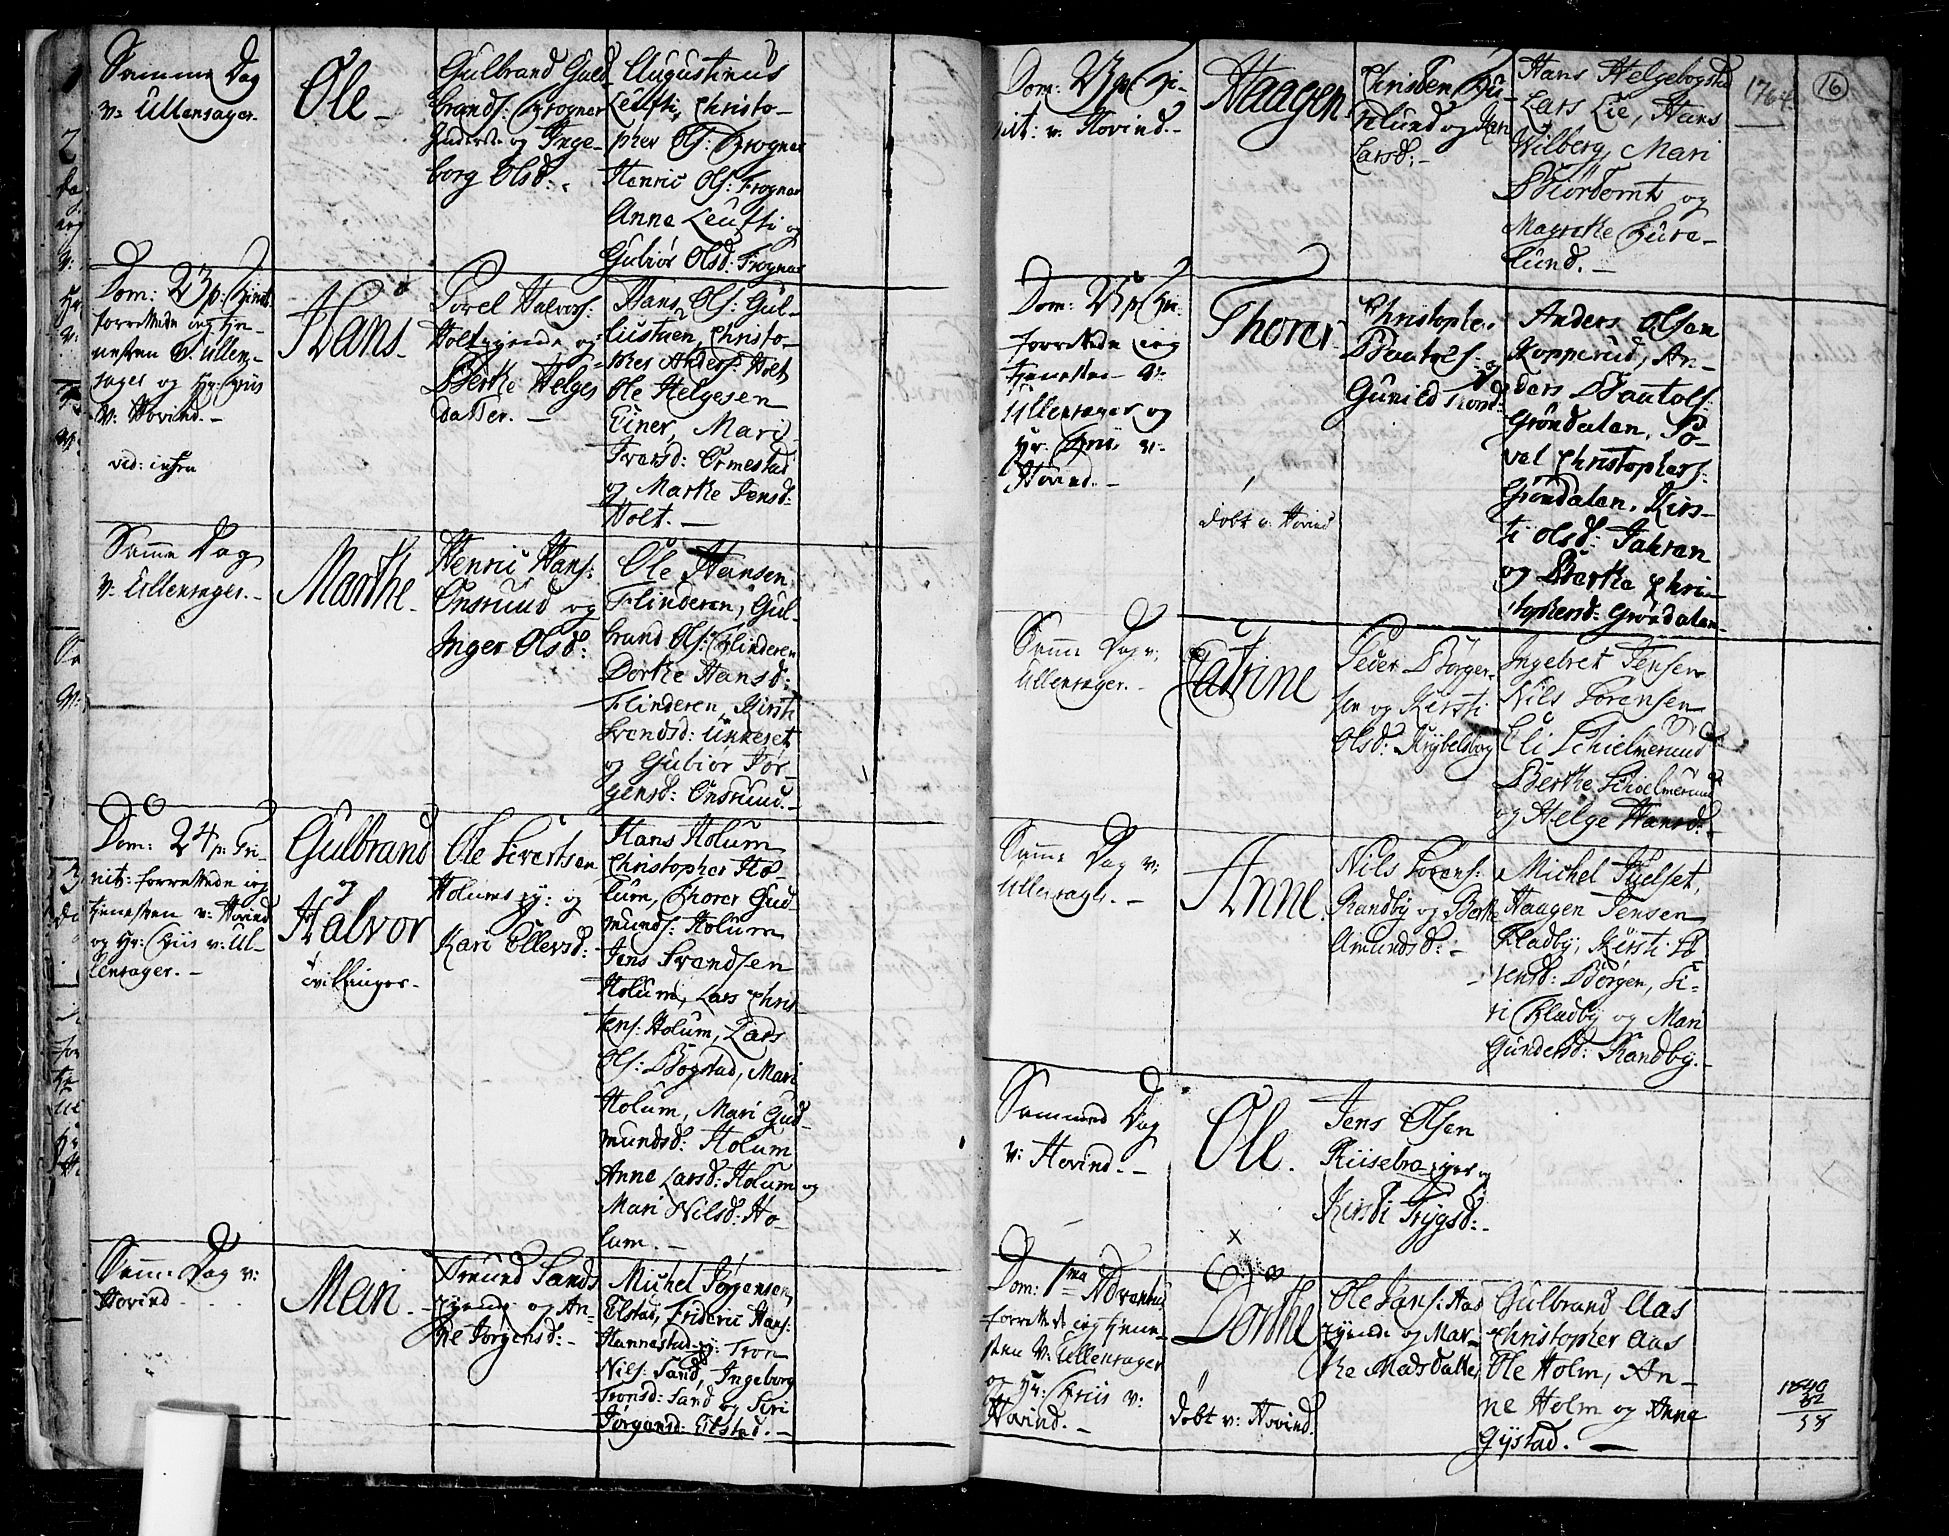 Samme Dag
v: Ullensager.
Ole
Gulbrand Guld-
brands: Frogner
og Inge-
borg Olsd:
Augustinus
Leufti, Christo-
pher Ols: Frogner
Henric Ols: Frogner
Anne Leufti og
Gubiør Olsd: Frogner
Dom: 23 p: Trinit:
forrettede ieg tie-
nesten v. Ullen-
sager og Hr: Friis
v: Hovind.
Hans
Povel Halvors:
Holteiende og
Berthe Helges
datter.
Hans Ols: Gul-
Christo-
pher Anders: Holt
Ole Helgesen
Einer, Mari
Ivarsd: Ormestad
og Marthe Jensd:
Holt.
Samme Dag
v: Ullensager.
Marthe
Henric Hans:
Onsruud og
Inger Olsd:
Ole Hansen
Flinderen, Gul-
brand Ols: Flinderen
Dorthe Hansd:
Flinderen, Kirsti
Svendsd:
og Gubiør Jør-
gensd: Onsruud.
Dom: 24 p: Tri-
nit: forrettede ieg
tienesten v: Hovind
og Hr: Friis v: Ul-
lensager.
Gulbrand
og
Halvor
tvillinger.
Ole Sivertsen
Holums ey: og
Kari Ollevsd:
Hans Holum
Christopher Ho-
lum, Thorer Gud-
munds: Holum
Jens Svendsen
Holum, Lars Chris
tens: Holum, Lars
Ols: Bogstad, Mari
Holum, Mari Gud-
mundsd: Holum
Anne Larsd: Holum og
Mari Nilsd: Ho-
lum.
Samme Dag v:
Hovind
Mari
Amund Sands
eyende og An-
ne Jørgensd:
Michel Jørgensen,
Elstad, Frideric Hans:
Hannestad ey: Tron
Nils: Sand, Ingeborg
Tronsd: Sand og Siri
Jørgensd: Elstad.
1764
16
Dom: 23 p: Tri-
nit: v: Hovind.
Haagen
Christen Fu-
relund og Kari
Larsd:
Hans Helgebogstad
Lars Lie, Hans
Wilberg, Mari
Biørtomt og
Magrethe Fure-
lund.
Dom: 23 p: Tri:
forrettede ieg
tienesten v:
Ullensager og
Hr: Friis v:
Hovind.
Thorer
døbt v: Hovind
Christopher
Baatols: og
Gunild Trond
Anders Olsen
Kopperud, An-
ders Baatols:
Grøndalen, Po-
vel Christophers:
Grøndalen, Kirs-
ti Olsd: Jahren
og Berthe Chri-
stophersd: Grøndalen
Samme Dag v:
Ullensager.
Catrine
Peder Børger-
sen og Kirsti
Olsd: Krybelsbog
Ingebret Jensen
Nils Sørensen
Eli Schielmerud
Berthe Schielmerud
og Helge Hansd:
Samme Dag v:
Ullensager.
Anne
Nils Sørens:
Randby og Berthe
Amundsd:
Michel Kielset,
Haagen Jensen
Fladby, Kirsti Sø-
rensd: Børgen, Si-
ri Fladby og Mari
Gundersd: Randby.
Sammed Dag
v: Hovind.
Ole.
Jens Olsen
Riisebro eyer og
Kirsti Trygsd:
x
Dom: 1ma Adventus
forrettede ieg tiene-
sten v: Ullensager
og Hr: Friis v:
Hovind.
Dorthe
døbt v: Hovind.
Ole Hans: Aas
eyende og Mar-
the Madsdatter
Gulbrand Aas
Christopher Aas
Ole Holm, An-
ne Holm og Anne
Gystad.